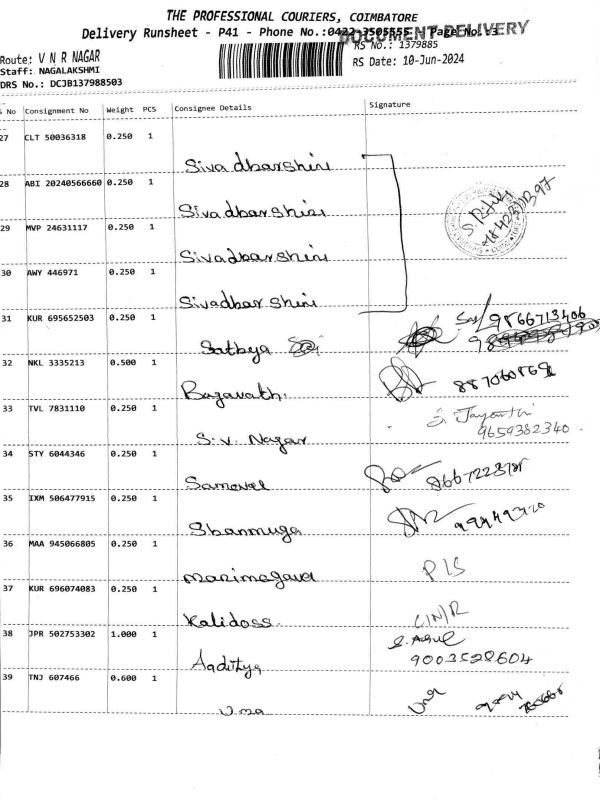 THE PROFESSIONAL COURIERS, COIMBATORE
Delivery Runsheet - P41 - Phone No.:0422-3505555 Page No.:3
DOCUMENT DELIVERY
Route: V N R NAGAR
RS No.: 1379885
Staff: NAGALAKSHMI
RS Date: 10-Jun-2024
DRS No.: DCJB137988503
S No Consignment No Weight PCS Consignee Details Signature
27 CLT 50036318 0.250 1
Sivadharshini
28 ABI 20240566660 0.250 1
Sivadharshini
29 MVP 24631117 0.250 1
Sivadharshini
30 AWY 446971 0.250 1
Sivadharshini
31 KUR 695652503 0.250 1
Sathya 9866713406
32 NKL 3335213 0.500 1
Bagavathi
33 TVL 7831110 0.250 1
Jayanthi
S.V. Nagar 9659382340
34 STY 6044346 0.250 1
Samuvel
35 IXM 506477915 0.250 1
Shanmuga
36 MAA 945066805 0.250 1
P/S
37 KUR 696074083 0.250 1
Kalidoss C/N/R
38 JPR 502753302 1.000 1
Aaditya 9003528604
39 TNJ 607466 0.600 1
Uma Uma